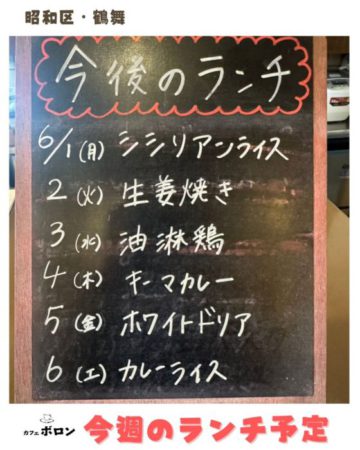 昭和区・鶴舞
今後のランチ
6/1(月) シシリアンライス
2(火) 生姜焼き
3(水) 油淋鶏
4(木) キーマカレー
5(金) ホワイトドリア
6(土) カレーライス
カフェ ボロン
今週のランチ予定